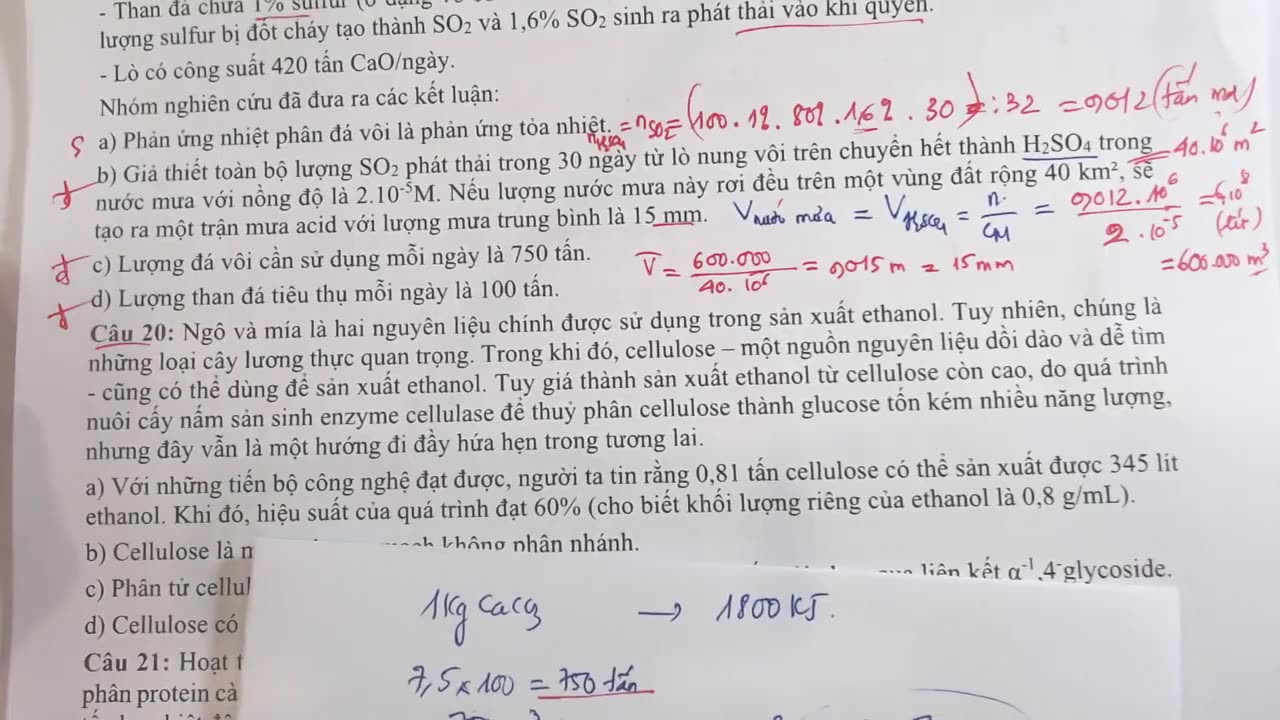 - Than đá chứa 1% sulfur
lượng sulfur bị đốt cháy tạo thành SO₂ và 1,6% SO₂ sinh ra phát thải vào khí quyển.
- Lò có công suất 420 tấn CaO/ngày.
Nhóm nghiên cứu đã đưa ra các kết luận:
S a) Phản ứng nhiệt phân đá vôi là phản ứng tỏa nhiệt. = nSO₂ = (100.1%.80%.1,6%.30):32 = 0,012 (tấn mol)
đ b) Giả thiết toàn bộ lượng SO₂ phát thải trong 30 ngày từ lò nung vôi trên chuyển hết thành H₂SO₄ trong
nước mưa với nồng độ là 2.10⁻⁵M. Nếu lượng nước mưa này rơi đều trên một vùng đất rộng 40 km², sẽ 40.10⁶ m²
tạo ra một trận mưa acid với lượng mưa trung bình là 15 mm. V nước mưa = V H₂SO₄ = n/CM = 0,012.10⁶/2.10⁻⁵ = 6.10⁸ (lít)
= 600.000 m³
đ c) Lượng đá vôi cần sử dụng mỗi ngày là 750 tấn. V = 600.000/40.10⁶ = 0,015 m = 15 mm
đ d) Lượng than đá tiêu thụ mỗi ngày là 100 tấn.
Câu 20: Ngô và mía là hai nguyên liệu chính được sử dụng trong sản xuất ethanol. Tuy nhiên, chúng là
những loại cây lương thực quan trọng. Trong khi đó, cellulose – một nguồn nguyên liệu dồi dào và dễ tìm
- cũng có thể dùng để sản xuất ethanol. Tuy giá thành sản xuất ethanol từ cellulose còn cao, do quá trình
nuôi cấy nấm sản sinh enzyme cellulase để thuỷ phân cellulose thành glucose tốn kém nhiều năng lượng,
nhưng đây vẫn là một hướng đi đầy hứa hẹn trong tương lai.
a) Với những tiến bộ công nghệ đạt được, người ta tin rằng 0,81 tấn cellulose có thể sản xuất được 345 lít
ethanol. Khi đó, hiệu suất của quá trình đạt 60% (cho biết khối lượng riêng của ethanol là 0,8 g/mL).
b) Cellulose là mạch không phân nhánh.
c) Phân tử cellul liên kết α⁻¹,4⁻glycoside.
d) Cellulose có
1kg CaCO₃ → 1800 KJ.
Câu 21: Hoạt t
7,5 x 100 = 750 tấn
phân protein cà